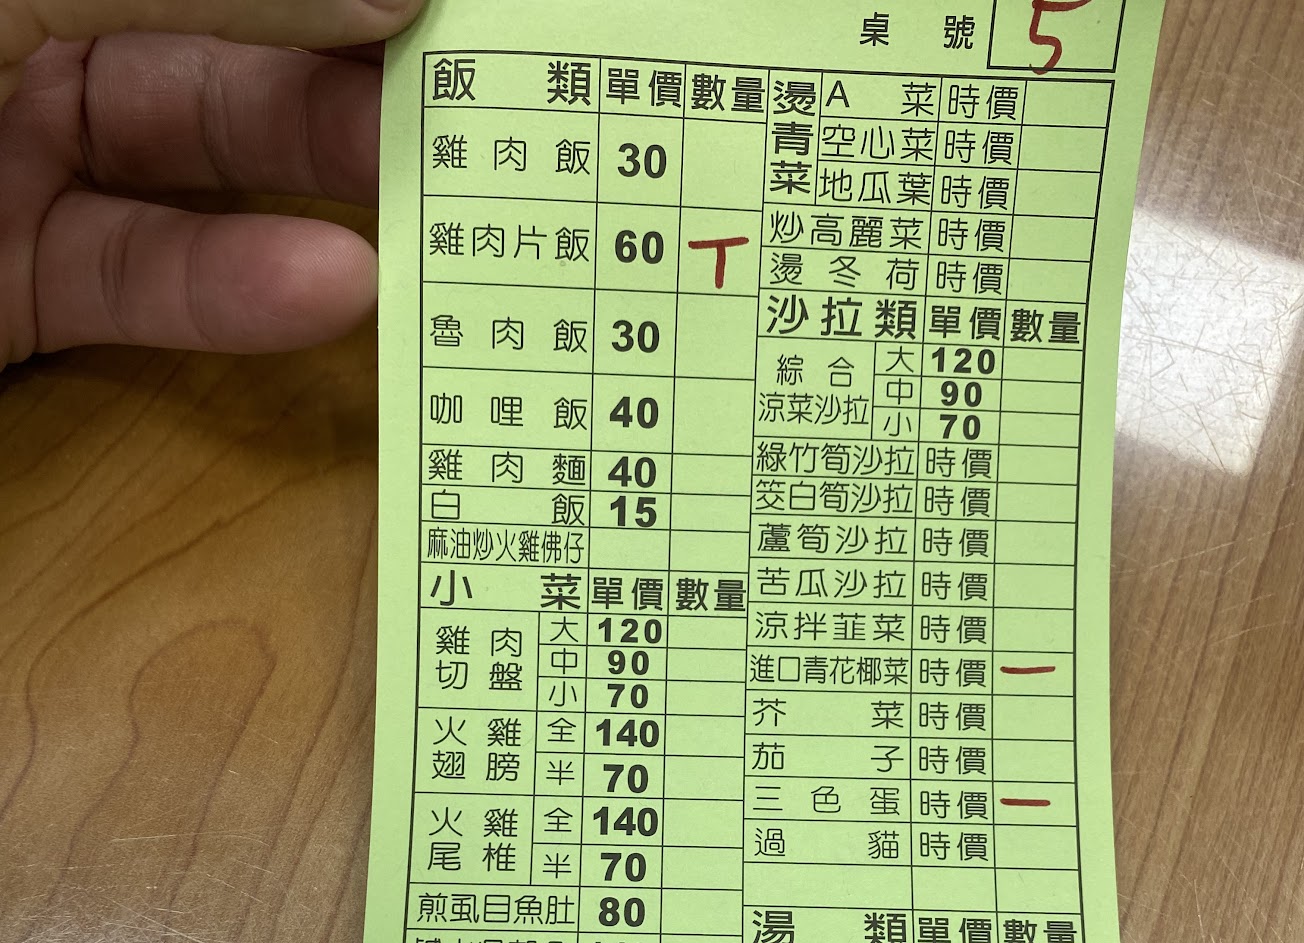 桌號 5
飯類 單價 數量
雞肉飯 30
雞肉片飯 60 T
魯肉飯 30
咖哩飯 40
雞肉麵 40
白飯 15
麻油炒火雞佛仔
小菜 單價 數量
雞肉切盤 大 120
中 90
小 70
火雞翅膀 全 140
半 70
火雞尾椎 全 140
半 70
煎虱目魚肚 80
燙青菜 A菜 時價
空心菜 時價
地瓜葉 時價
炒高麗菜 時價
燙冬荷 時價
沙拉類 單價 數量
綜合涼菜沙拉 大 120
中 90
小 70
綠竹筍沙拉 時價
筊白筍沙拉 時價
蘆筍沙拉 時價
苦瓜沙拉 時價
涼拌韮菜 時價
進口青花椰菜 時價 一
芥菜 時價
茄子 時價
三色蛋 時價 一
過貓 時價
湯類 單價 數量